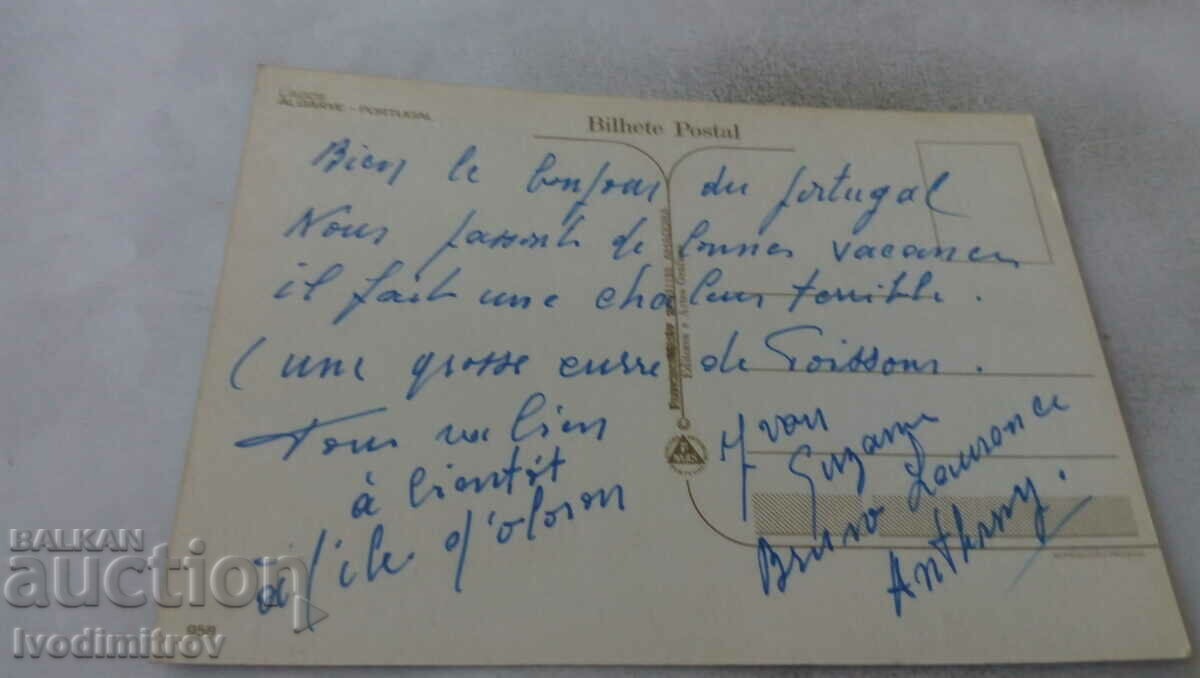 LAGOS
ALGARVE - PORTUGAL
Bilhete Postal
Bien le bonjour du portugal
Nous passons de bonnes vacances
il fait une chaleur terrible.
(une grosse de Poissons.
Tous va bien
à bientôt
à l'ile d'oloron
Yvon
Suzanne
Bruno Laurence
Anthony.
950
BALKAN
auction
Ivodimitrov